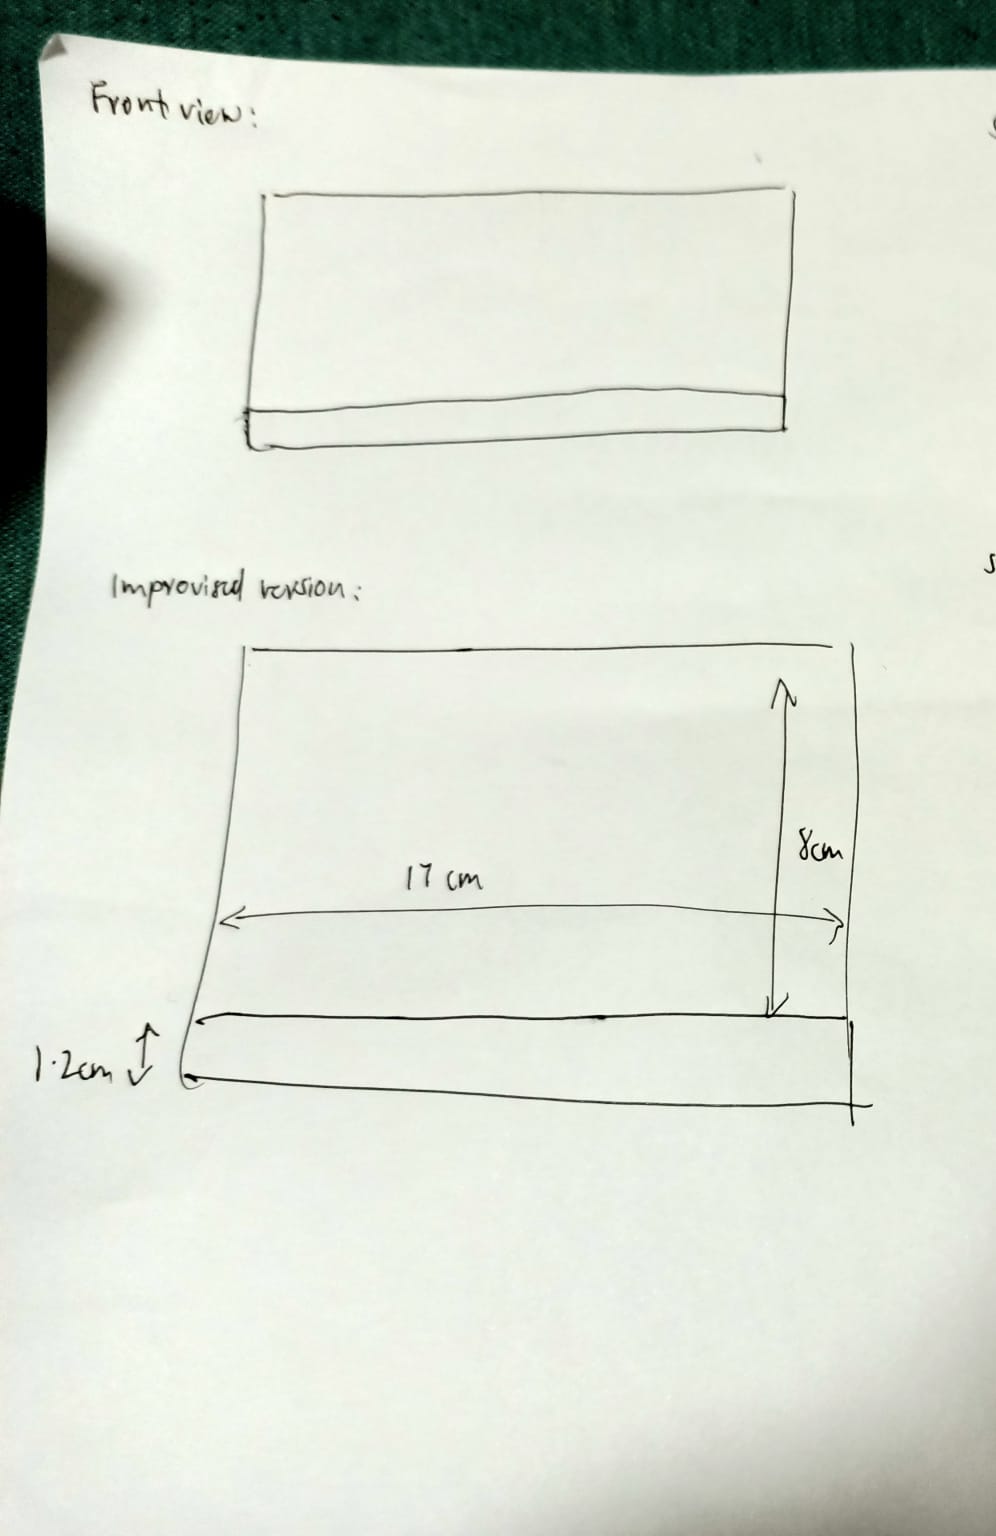 Front view:
Improvised version:
8cm
17 cm
1.2cm